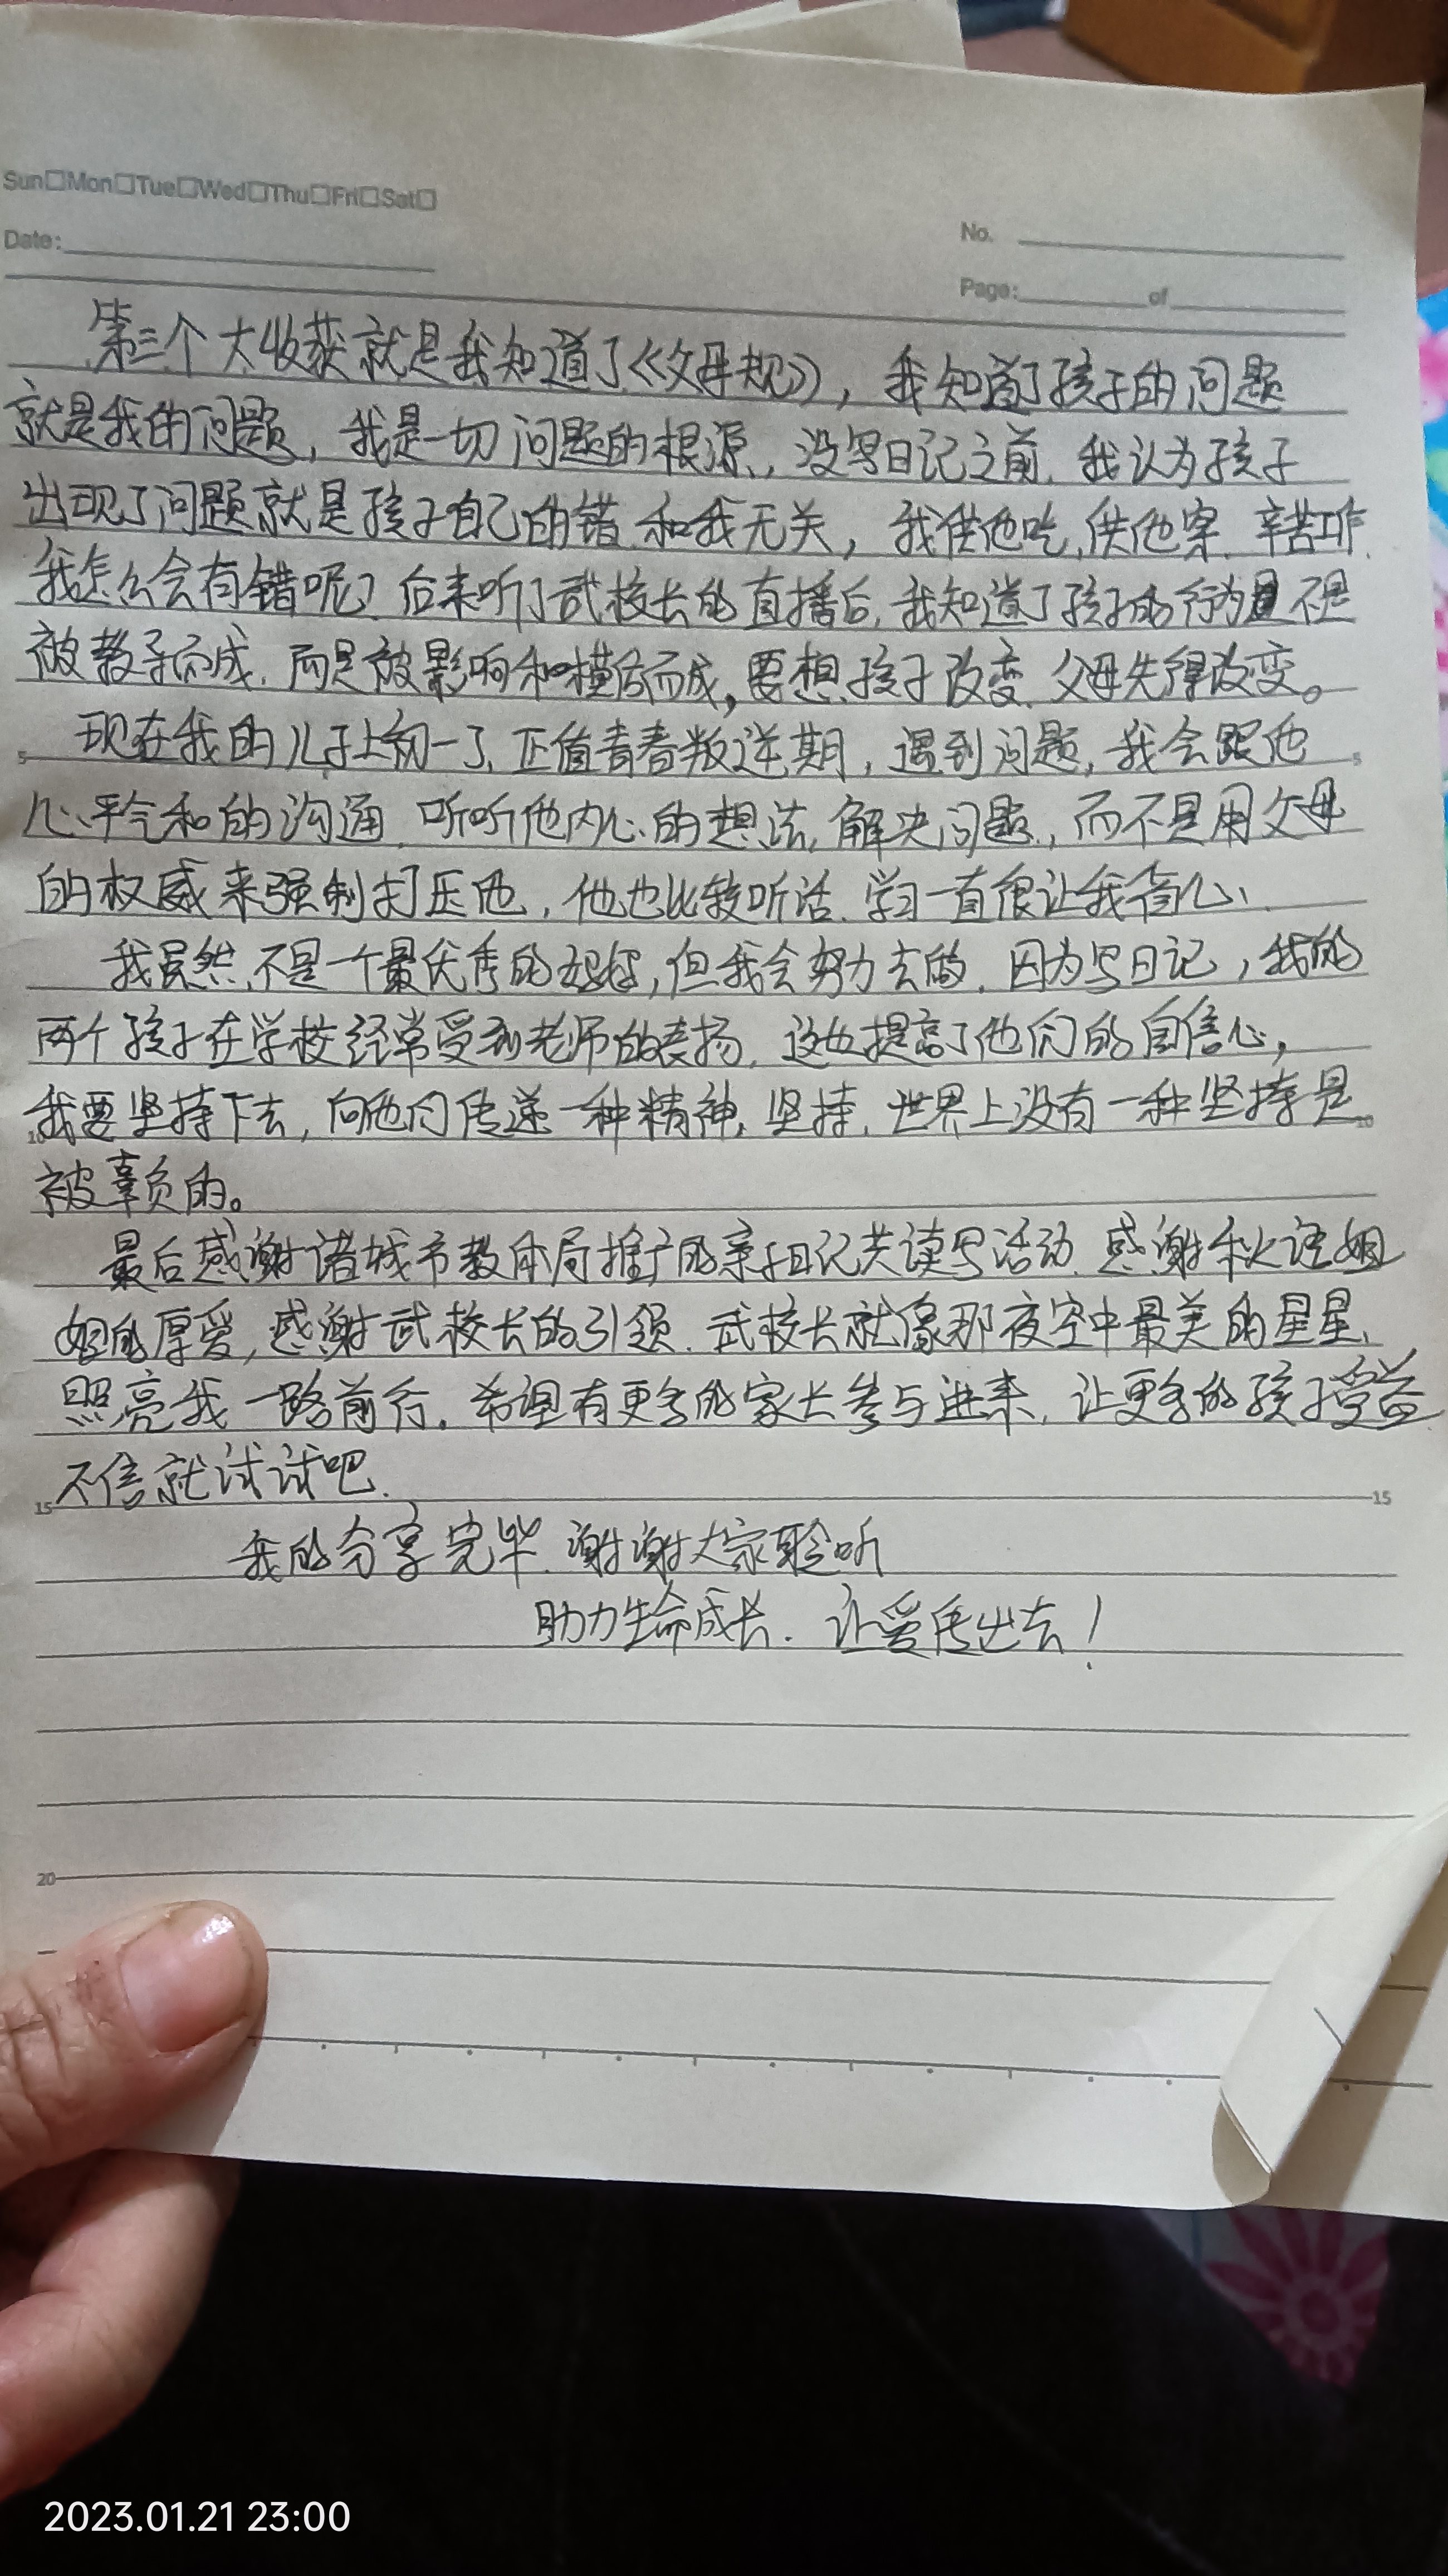 Sun□Mon□Tue□Wed□Thu□Fri□Sat□
Date:
No.
Page: of
第三个大收获就是我知道了《父母规》，我知道了孩子的问题
就是我的问题，我是一切问题的根源，没写日记之前，我认为孩子
出现了问题就是孩子自己的错，和我无关，我供他吃，供他穿，辛苦工作，
我怎么会有错呢？后来听了武校长的直播后，我知道了孩子的行为 不是
被教导而成，而是被影响和模仿而成，要想孩子改变，父母先得改变。
现在我的儿子上初一了，正值青春叛逆期，遇到问题，我会跟他
5 5
心平气和的沟通，听听他内心的想法，解决问题，而不是用父母
的权威来强制打压他，他也比较听话，学习一直很让我省心、
我虽然不是一个最优秀的妈妈，但我会努力去做，因为写日记，我的
两个孩子在学校经常受到老师的表扬，这也提高了他们的自信心，
我要坚持下去，向他们传递一种精神，坚持，世界上没有一种坚持是
10 10
被辜负的。
最后感谢诸城市教体局推广的亲子日记共读写活动，感谢秋语姐
姐的厚爱，感谢武校长的引领，武校长就像那夜空中最美的星星，
照亮我一路前行。希望有更多的家长参与进来，让更多的孩子受益
不信就试试吧.
15 15
我的分享完毕，谢谢大家聆听
助力生命成长.让爱传出去！
20
2023.01.21 23:00